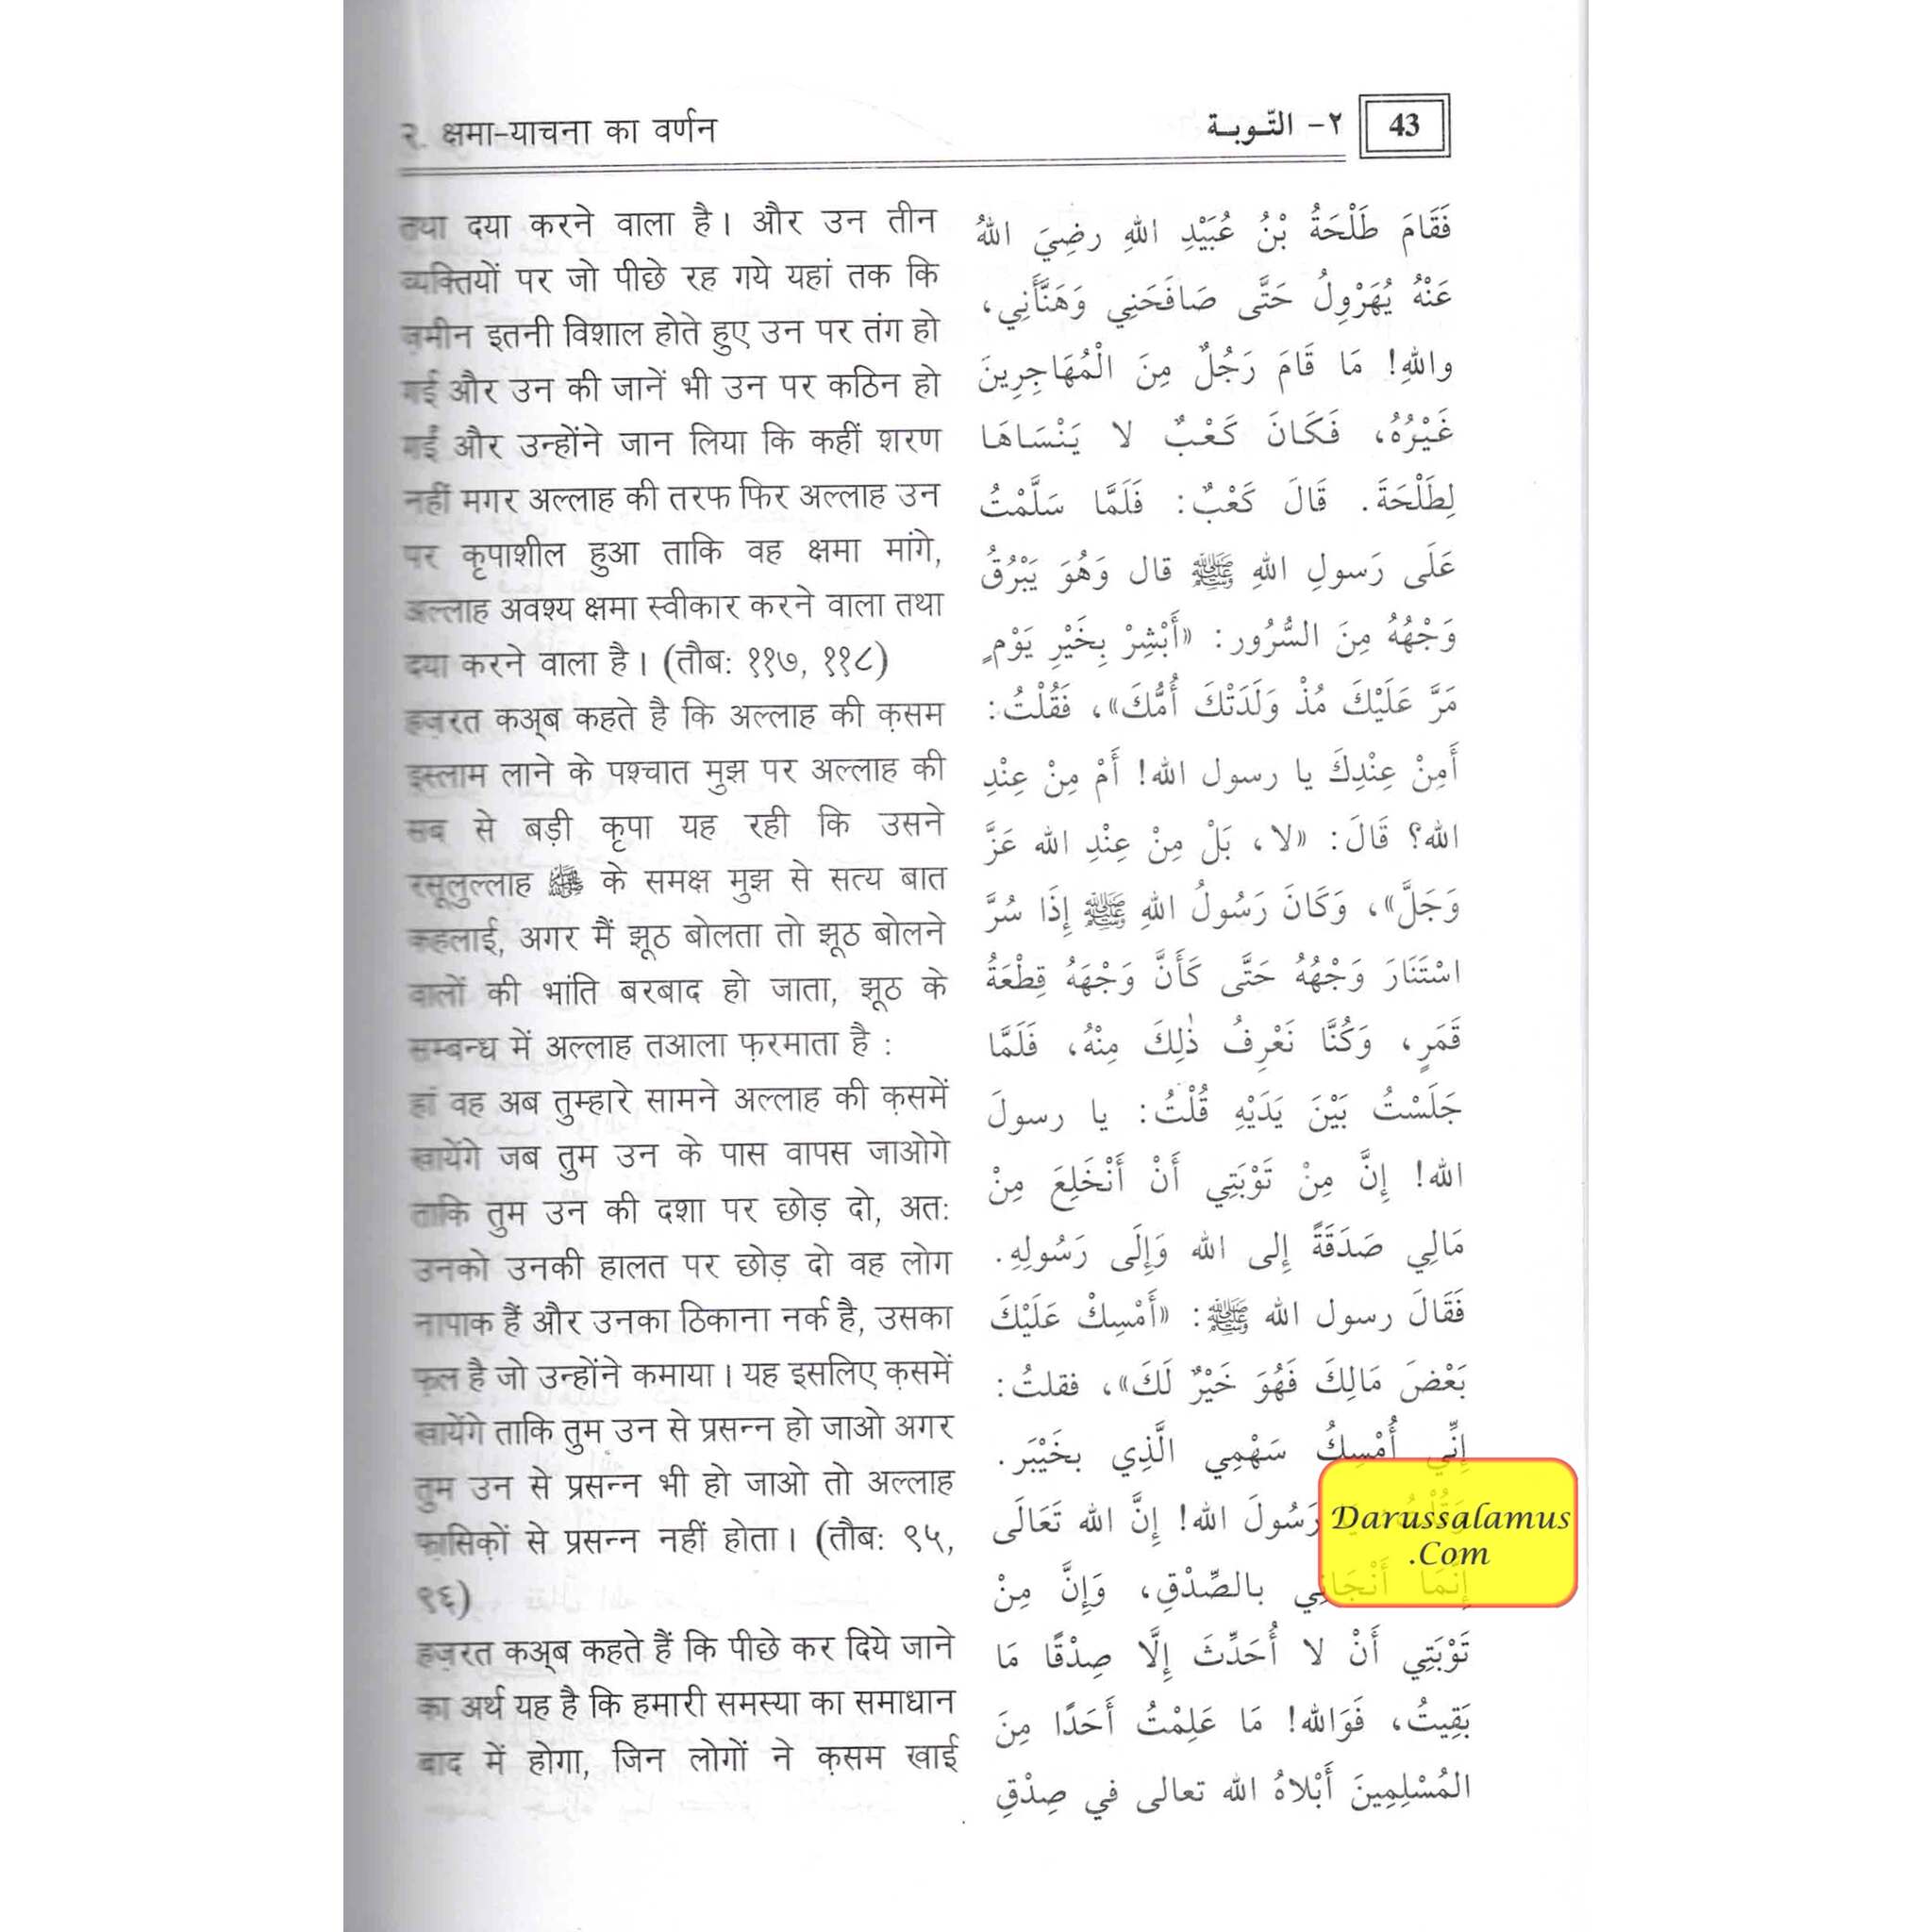 २. क्षमा-याचना का वर्णन
٢- التّوبة
43
तथा दया करने वाला है। और उन तीन
व्यक्तियों पर जो पीछे रह गये यहां तक कि
ज़मीन इतनी विशाल होते हुए उन पर तंग हो
गई और उन की जानें भी उन पर कठिन हो
गईं और उन्होंने जान लिया कि कहीं शरण
नहीं मगर अल्लाह की तरफ फिर अल्लाह उन
पर कृपाशील हुआ ताकि वह क्षमा मांगे,
अल्लाह अवश्य क्षमा स्वीकार करने वाला तथा
दया करने वाला है। (तौब: ११७, ११८)
हज़रत कअ्ब कहते है कि अल्लाह की क़सम
इस्लाम लाने के पश्चात मुझ पर अल्लाह की
सब से बड़ी कृपा यह रही कि उसने
रसूलुल्लाह ﷺ के समक्ष मुझ से सत्य बात
कहलाई, अगर मैं झूठ बोलता तो झूठ बोलने
वालों की भांति बरबाद हो जाता, झूठ के
सम्बन्ध में अल्लाह तआला फ़रमाता है :
हां वह अब तुम्हारे सामने अल्लाह की क़समें
खायेंगे जब तुम उन के पास वापस जाओगे
ताकि तुम उन की दशा पर छोड़ दो, अत:
उनको उनकी हालत पर छोड़ दो वह लोग
नापाक हैं और उनका ठिकाना नर्क है, उसका
फल है जो उन्होंने कमाया। यह इसलिए क़समें
खायेंगे ताकि तुम उन से प्रसन्न हो जाओ अगर
तुम उन से प्रसन्न भी हो जाओ तो अल्लाह
फ़ासिक़ों से प्रसन्न नहीं होता। (तौब: ९५,
९६)
हज़रत कअ्ब कहते हैं कि पीछे कर दिये जाने
का अर्थ यह है कि हमारी समस्या का समाधान
बाद में होगा, जिन लोगों ने क़सम खाई
فَقَامَ طَلْحَةُ بْنُ عُبَيْدِ اللهِ رضِيَ اللهُ
عَنْهُ يُهَرْوِلُ حَتَّى صَافَحَنِي وَهَنَّأَنِي،
واللهِ! مَا قَامَ رَجُلٌ مِنَ الْمُهَاجِرِينَ
غَيْرُهُ، فَكَانَ كَعْبٌ لا يَنْسَاهَا
لِطَلْحَةَ. قَالَ كَعْبٌ: فَلَمَّا سَلَّمْتُ
عَلَى رَسولِ اللهِ ﷺ قال وَهُوَ يَبْرُقُ
وَجْهُهُ مِنَ السُّرُور: «أَبْشِرْ بِخَيْرِ يَوْمٍ
مَرَّ عَلَيْكَ مُذْ وَلَدَتْكَ أُمُّكَ»، فَقُلْتُ:
أَمِنْ عِنْدِكَ يا رسول الله! أَمْ مِنْ عِنْدِ
الله؟ قَالَ: «لا، بَلْ مِنْ عِنْدِ الله عَزَّ
وَجَلَّ»، وَكَانَ رَسُولُ اللهِ ﷺ إِذَا سُرَّ
اسْتَنَارَ وَجْهُهُ حَتَّى كَأَنَّ وَجْهَهُ قِطْعَةُ
قَمَرٍ، وَكُنَّا نَعْرِفُ ذٰلِكَ مِنْهُ، فَلَمَّا
جَلَسْتُ بَيْنَ يَدَيْهِ قُلْتُ: يا رسولَ
الله! إِنَّ مِنْ تَوْبَتِي أَنْ أَنْخَلِعَ مِنْ
مَالِي صَدَقَةً إلى الله وَإِلَى رَسُولِهِ.
فَقَالَ رسول الله ﷺ: «أَمْسِكْ عَلَيْكَ
بَعْضَ مَالِكَ فَهُوَ خَيْرٌ لَكَ»، فقلتُ:
إِنِّي أُمْسِكُ سَهْمِي الَّذِي بخَيْبَر.
وَقُلْتُ: رَسُولَ الله! إِنَّ الله تَعَالَى
إِنَّمَا أَنْجَانِي بالصِّدْقِ، وَإِنَّ مِنْ
تَوْبَتِي أَنْ لا أُحَدِّثَ إِلَّا صِدْقًا مَا
بَقِيتُ، فَوَالله! مَا عَلِمْتُ أَحَدًا مِنَ
المُسْلِمِينَ أَبْلاهُ الله تعالى في صِدْقِ
Darussalamus
.Com